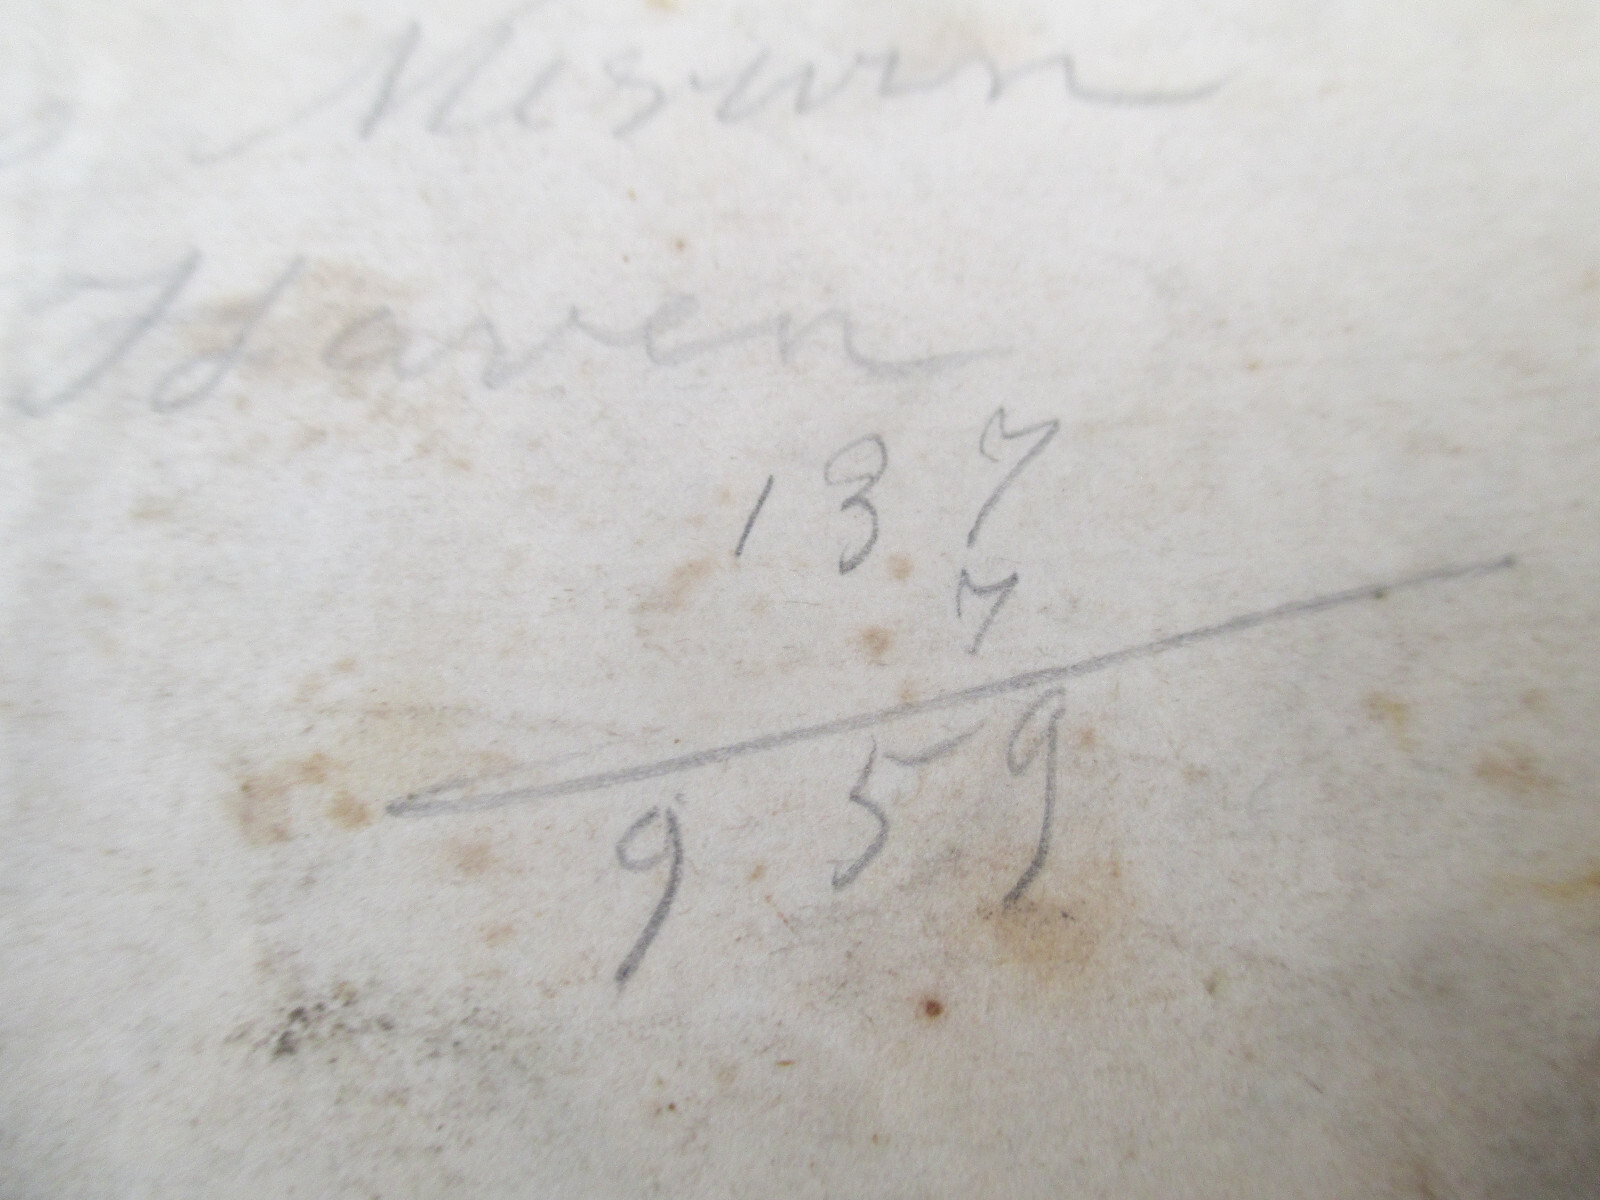 Merwin
Haven
137
7
959